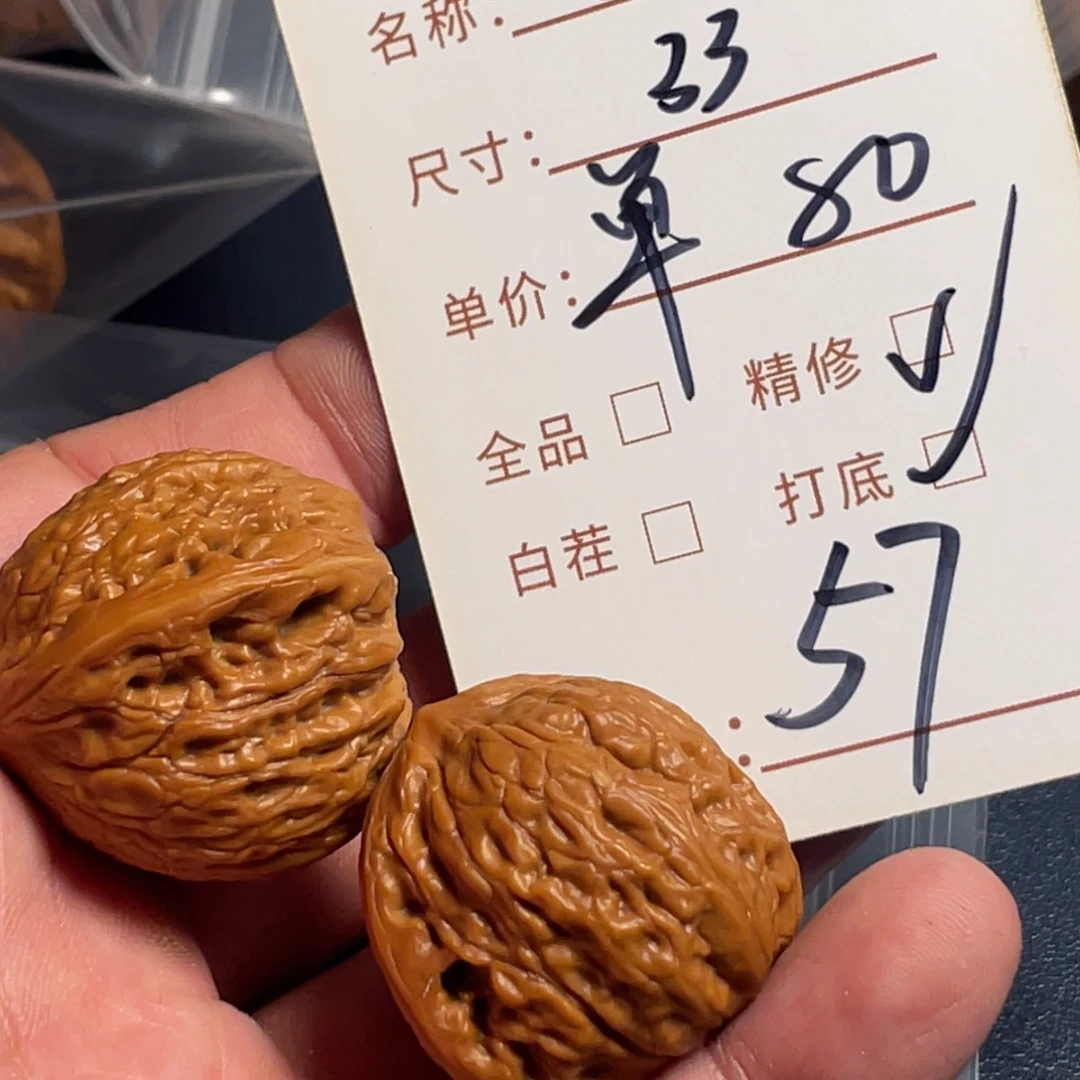 名称：
尺寸： 33
单价： 单 80
全品 □ 精修 ☑
白茬 □ 打底 ☑
： 57